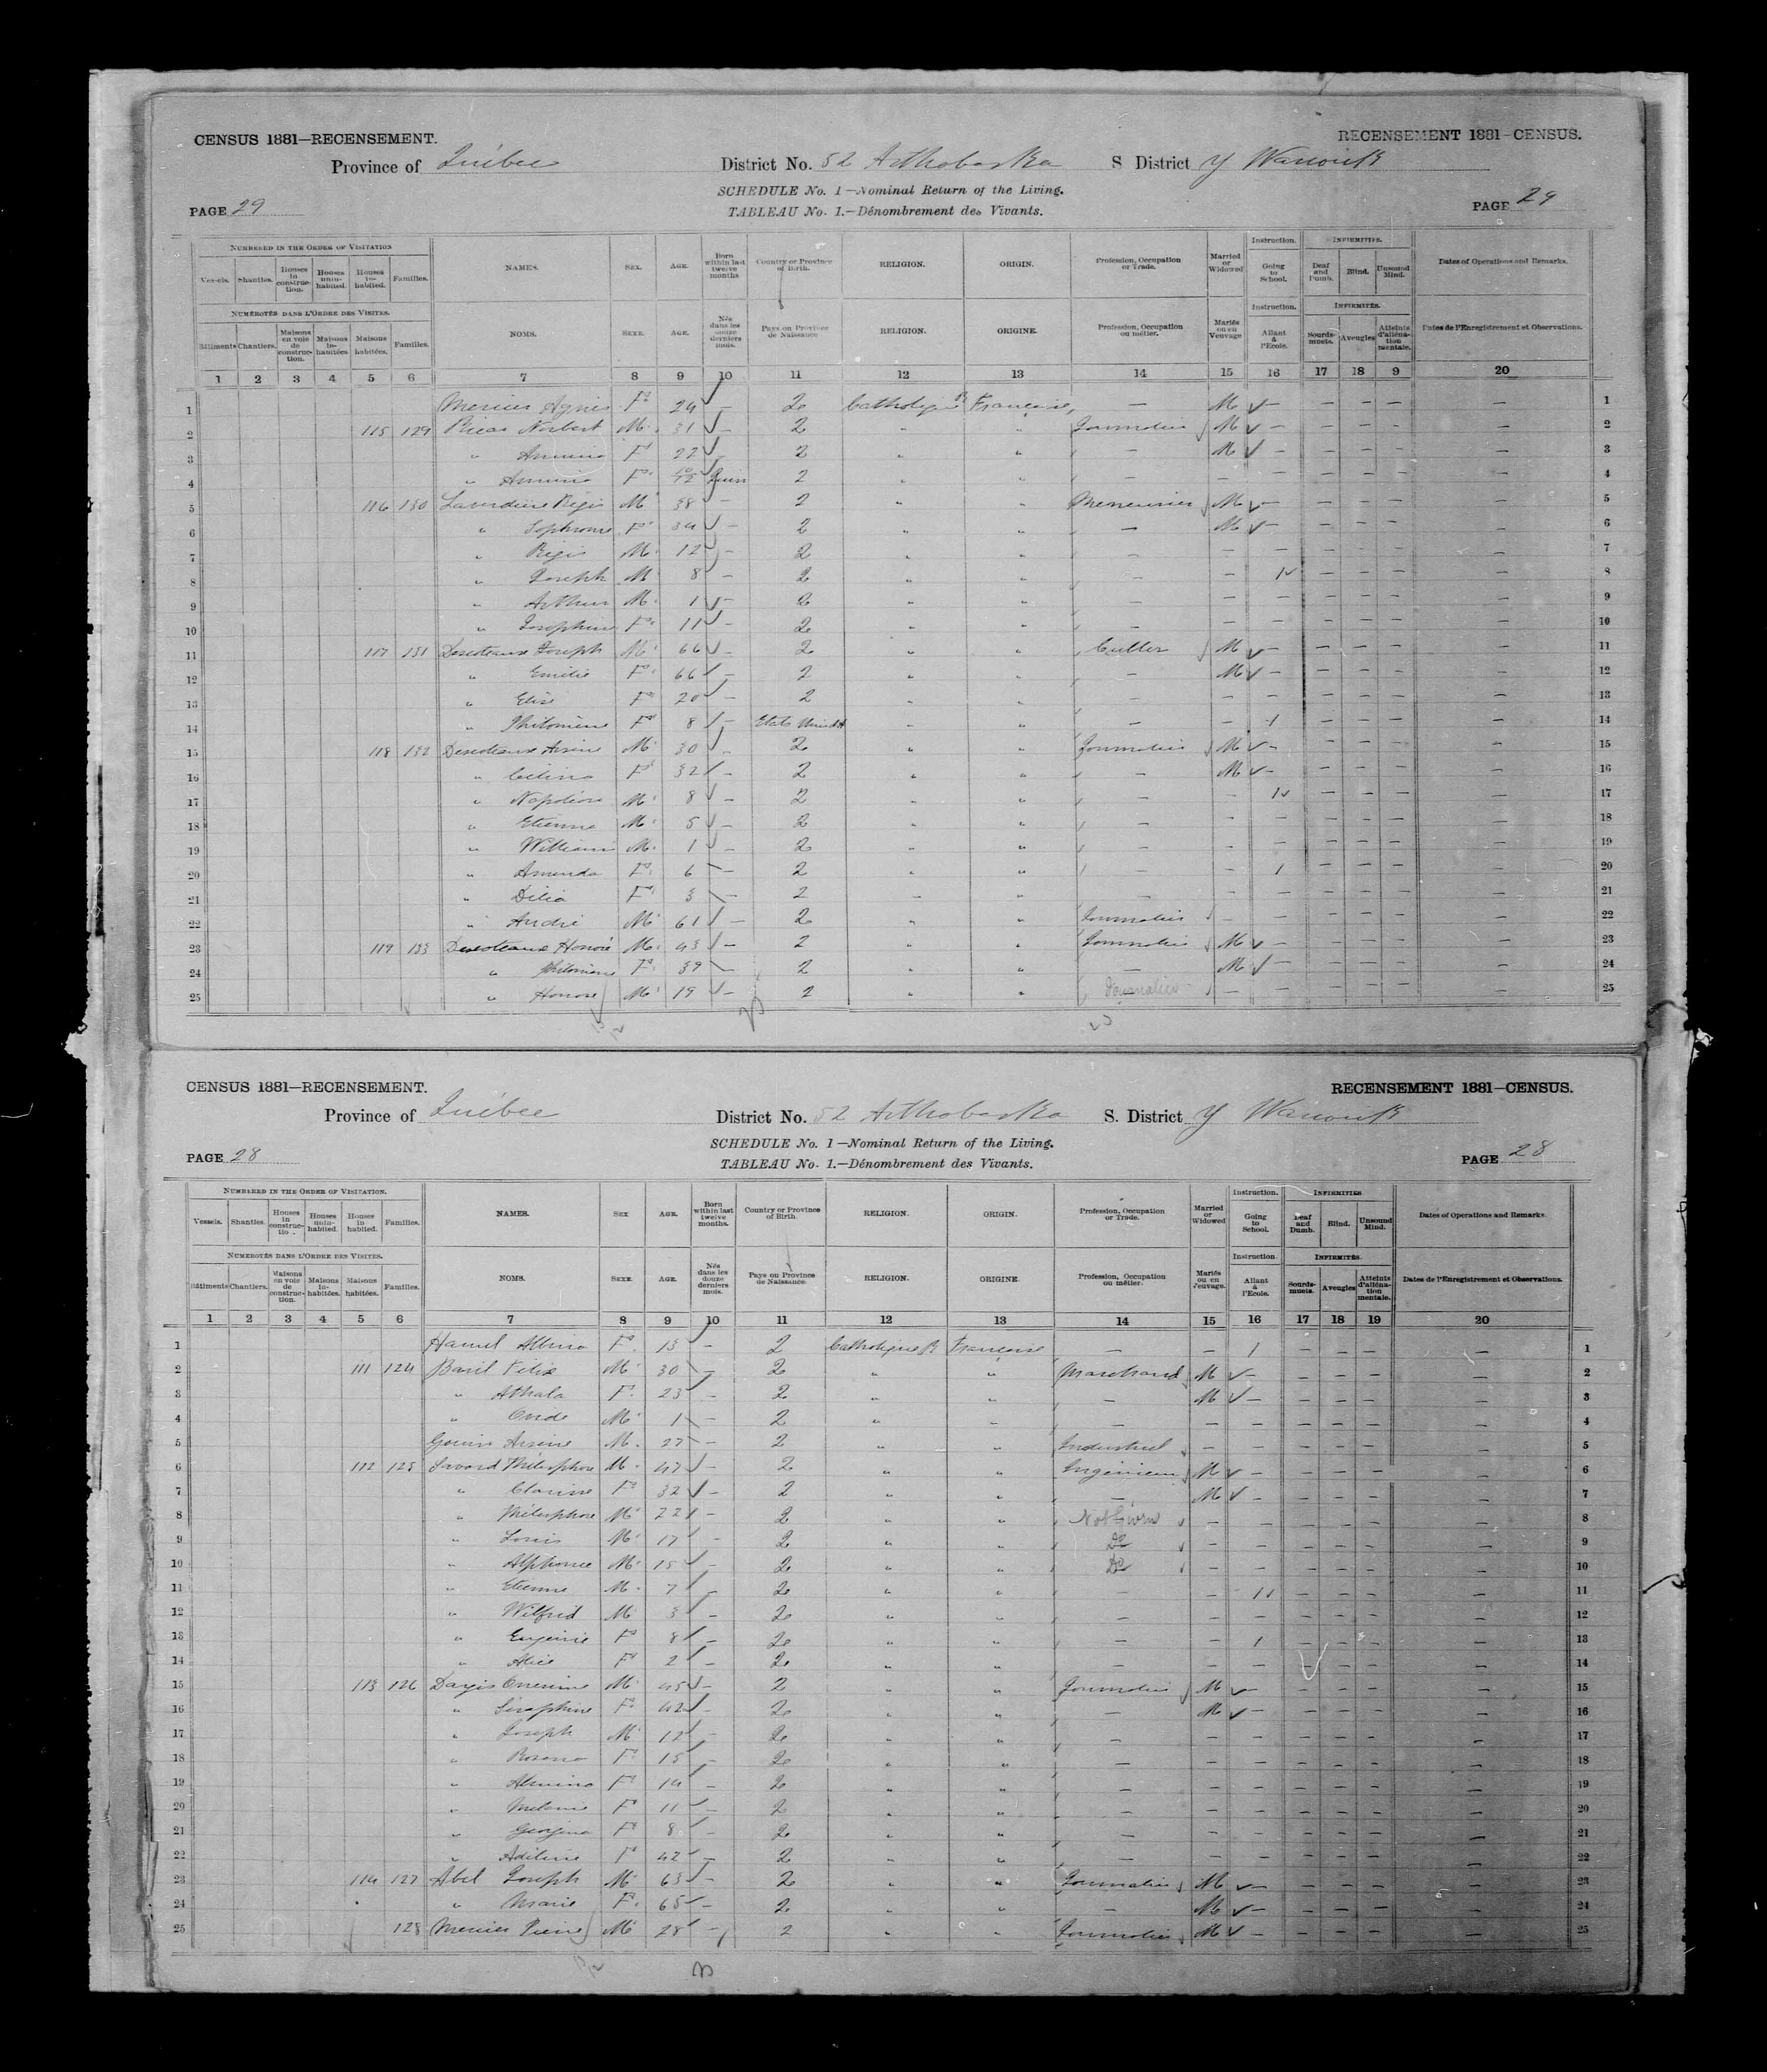 CENSUS 1881—RECENSEMENT. RECENSEMENT 1881-CENSUS.
Province of Québec District No. 52 Arthabaska S District y Warwick
SCHEDULE No. 1—Nominal Return of the Living.
PAGE 29 TABLEAU No. 1.—Dénombrement des Vivants. PAGE 29
NUMBERED IN THE ORDER OF VISITATION NAMES. SEX. AGE. Born within last twelve months Country or Province of Birth. RELIGION. ORIGIN. Profession, Occupation or Trade. Married or Widowed Instruction. Going to School. INFIRMITIES. Deaf and Dumb. Blind. Unsound Mind. Dates of Operations and Remarks.
Vessels. Shanties. Houses in construction. Houses uninhabited. Houses inhabited. Families.
NUMÉROTÉS DANS L'ORDRE DES VISITES. NOMS. SEXE. AGE. Nés dans les douze derniers mois. Pays ou Province de Naissance RELIGION. ORIGINE. Profession, Occupation ou métier. Mariés ou en Veuvage Instruction. Allant à l'Ecole. INFIRMITÉS. Sourds-muets. Aveugles Atteints d'aliénation mentale. Dates de l'Enregistrement et Observations.
Bâtiments Chantiers. Maisons en voie de construction. Maisons inhabitées. Maisons habitées. Familles.
1 2 3 4 5 6 7 8 9 10 11 12 13 14 15 16 17 18 9 20
1 Mercier Agnes F 24 – 2 Catholique R Française — M – – – – — 1
2 115 129 Norbert M 31 – 2 " " Journalier M – – – – — 2
3 " F 22 2 " " — M – – – – — 3
4 " F 10/12 Juin 2 " " — – – – – – — 4
5 116 130 Laverdière Régis M 38 – 2 " " Menuisier M – – – – — 5
6 " Sophronie F 34 – 2 " " — M – – – – — 6
7 " Régis M 12 – 2 " " — – – – – – — 7
8 " Joseph M 8 – 2 " " — – 1 – – – — 8
9 " Arthur M 1 – 2 " " — – – – – – — 9
10 " Josephine F 11 – 2 " " — – – – – – — 10
11 117 131 Descoteaux Joseph M 66 – 2 " " Culler M – – – – — 11
12 " Emilie F 66 – 2 " " — M – – – – — 12
13 " Elise F 20 – 2 " " — – – – – – — 13
14 " Philomène F 8 – Etats Unis " " — – 1 – – – — 14
15 118 132 Descoteaux Arsène M 30 2 " " Journalier M – – – – — 15
16 " Célina F 32 – 2 " " — M – – – – — 16
17 " Napoléon M 8 – 2 " " — – 1 – – – — 17
18 " Etienne M 5 – 2 " " — – – – – – — 18
19 " William M 1 – 2 " " — – – – – – — 19
20 " Amanda F 6 – 2 " " — – 1 – – – — 20
21 " Délia F 3 – 2 " " — – – – – – — 21
22 " André M 61 – 2 " " Journalier – – – – – — 22
23 119 133 Descoteaux Honoré M 43 – 2 " " Journalier M – – – – — 23
24 " Philomène F 39 – 2 " " — M – – – – — 24
25 " Honoré M 19 – 2 " " Journalier – – – – – — 25
CENSUS 1881—RECENSEMENT. RECENSEMENT 1881—CENSUS.
Province of Québec District No. 52 Arthabaska S. District y Warwick
SCHEDULE No. 1—Nominal Return of the Living.
PAGE 28 TABLEAU No. 1.—Dénombrement des Vivants. PAGE 28
NUMBERED IN THE ORDER OF VISITATION. NAMES. SEX AGE. Born within last twelve months. Country or Province of Birth. RELIGION. ORIGIN. Profession, Occupation or Trade. Married or Widowed Instruction. Going to School. INFIRMITIES Deaf and Dumb. Blind. Unsound Mind. Dates of Operations and Remarks.
Vessels. Shanties. Houses in construction. Houses uninhabited. Houses inhabited. Families.
NUMÉROTÉS DANS L'ORDRE DES VISITES. NOMS. SEXE. AGE. Nés dans les douze derniers mois. Pays ou Province de Naissance. RELIGION. ORIGINE. Profession, Occupation ou métier. Mariés ou en veuvage. Instruction. Allant à l'Ecole. INFIRMITÉS. Sourds-muets. Aveugles Atteints d'aliénation mentale. Dates de l'Enregistrement et Observations.
Bâtiments Chantiers. Maisons en voie de construction. Maisons inhabitées. Maisons habitées. Familles.
1 2 3 4 5 6 7 8 9 10 11 12 13 14 15 16 17 18 19 20
1 Hamel Albina F 13 – 2 Catholique R Française — – 1 – – – — 1
2 111 124 Baril Felix M 30 – 2 " " Marchand M – – – – — 2
3 " Athala F 23 – 2 " " — M – – – – — 3
4 " Ovide M 1 – 2 " " — – – – – – — 4
5 Gouin Arsène M 27 – 2 " " Industriel – – – – – — 5
6 112 125 Savard Thélesphore M 47 – 2 " " Ingénieur M – – – – — 6
7 " Clarisse F 32 – 2 " " — M – – – – — 7
8 " Thélesphore M 22 – 2 " " Not Given – – – – – — 8
9 " Louis M 17 – 2 " " Do – – – – – — 9
10 " Alphonse M 15 – 2 " " Do – – – – – — 10
11 " Etienne M 7 – 2 " " — – 1 – – – — 11
12 " Wilfrid M 3 – 2 " " — – – – – – — 12
13 " Eugénie F 8 – 2 " " — – 1 – – – — 13
14 " Alice F 2 – 2 " " — – – – – – — 14
15 113 126 Dargis Onesime M 45 – 2 " " Journalier M – – – – — 15
16 " Séraphine F 42 – 2 " " — M – – – – — 16
17 " Joseph M 12 – 2 " " — – – – – – — 17
18 " Rosanna F 15 – 2 " " — – – – – – — 18
19 " F 14 – 2 " " — – – – – – — 19
20 " Mélanie F 11 – 2 " " — – – – – – — 20
21 " Georgina F 8 – 2 " " — – – – – – — 21
22 " Adeline F 42 – 2 " " — – – – – – — 22
23 114 127 Abel Joseph M 63 – 2 " " Journalier M – – – – — 23
24 " Marie F 65 – 2 " " — M – – – – — 24
25 128 Mercier Pierre M 28 – 2 " " Journalier M – – – – — 25